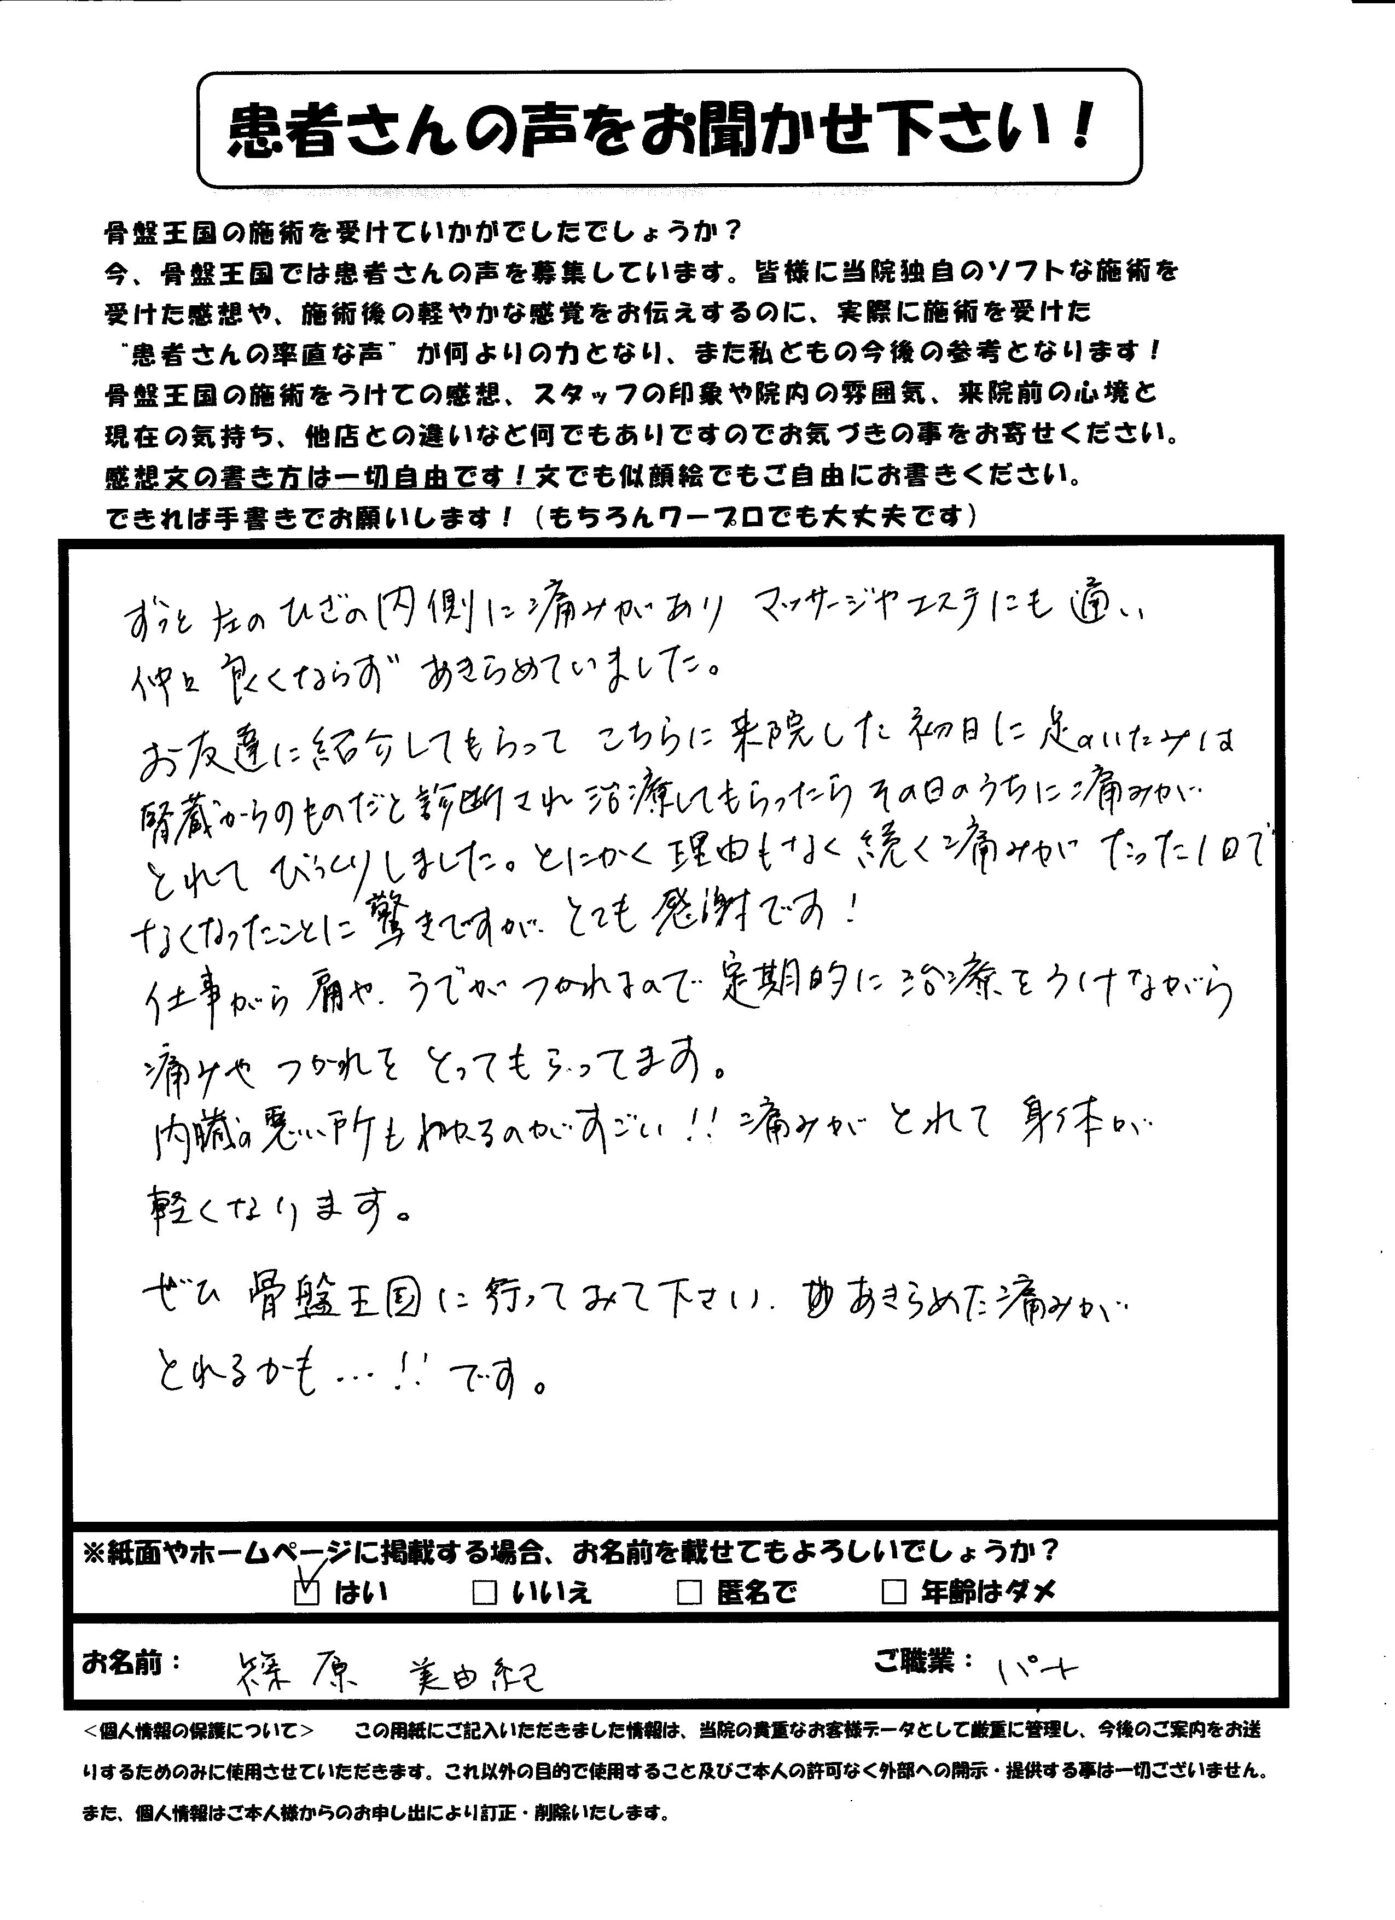 患者さんの声をお聞かせ下さい！
骨盤王国の施術を受けていかがでしたでしょうか？
今、骨盤王国では患者さんの声を募集しています。皆様に当院独自のソフトな施術を
受けた感想や、施術後の軽やかな感覚をお伝えするのに、実際に施術を受けた
“患者さんの率直な声”が何よりの力となり、また私どもの今後の参考となります！
骨盤王国の施術をうけての感想、スタッフの印象や院内の雰囲気、来院前の心境と
現在の気持ち、他店との違いなど何でもありですのでお気づきの事をお寄せください。
感想文の書き方は一切自由です！文でも似顔絵でもご自由にお書きください。
できれば手書きでお願いします！（もちろんワープロでも大丈夫です）
ずっと左のひざの内側に痛みがあり マッサージやエステにも通い
仲々良くならず あきらめていました。
お友達に紹介してもらって こちらに来院した初日に足のいたみは
腎蔵からのものだと診断され治療してもらったらその日のうちに痛みが
とれて びっくりしました。とにかく理由もなく続く痛みが たった1日で
なくなったことに驚きですが、とても感謝です！
仕事がら肩や、うでがつかれるので定期的に治療をうけながら
痛みや つかれを とってもらってます。
内臓の悪い所もわかるのがすごい!! 痛みがとれて身体が
軽くなります。
ぜひ 骨盤王国に行ってみて下さい、あきらめた痛みが
とれるかも…!! です。
※紙面やホームページに掲載する場合、お名前を載せてもよろしいでしょうか？
☑ はい □ いいえ □ 匿名で □ 年齢はダメ
お名前： 篠原 美由紀 ご職業： パート
＜個人情報の保護について＞ この用紙にご記入いただきました情報は、当院の貴重なお客様データとして厳重に管理し、今後のご案内をお送
りするためのみに使用させていただきます。これ以外の目的で使用すること及びご本人の許可なく外部への開示・提供する事は一切ございません。
また、個人情報はご本人様からのお申し出により訂正・削除いたします。